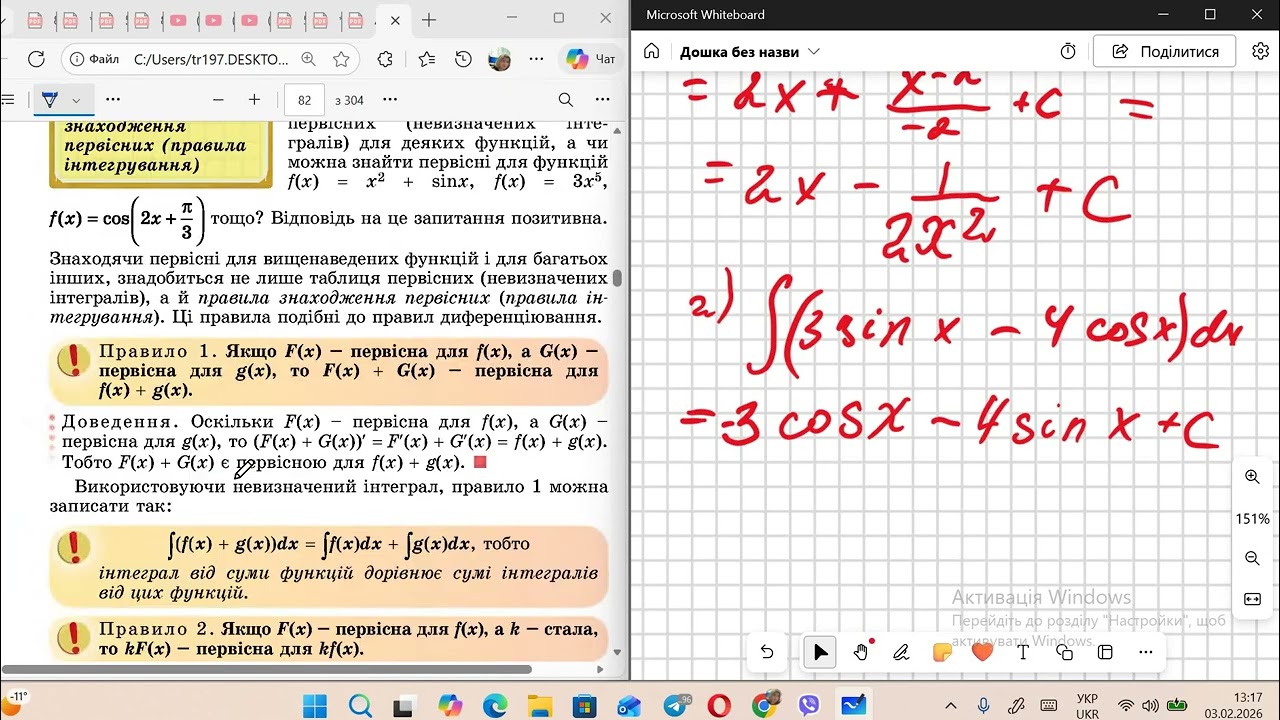 Microsoft Whiteboard
Файл C:/Users/tr197.DESKTO... Чат
Дошка без назви Поділитися
82 з 304
знаходження
первісних (правила
інтегрування)
первісних (невизначених інте-
гралів) для деяких функцій, а чи
можна знайти первісні для функцій
f(x) = x² + sinx, f(x) = 3x⁵,
f(x) = cos(2x + π/3) тощо? Відповідь на це запитання позитивна.
Знаходячи первісні для вищенаведених функцій і для багатьох
інших, знадобиться не лише таблиця первісних (невизначених
інтегралів), а й правила знаходження первісних (правила ін-
тегрування). Ці правила подібні до правил диференціювання.
Правило 1. Якщо F(x) – первісна для f(x), а G(x) –
первісна для g(x), то F(x) + G(x) – первісна для
f(x) + g(x).
Доведення. Оскільки F(x) – первісна для f(x), а G(x) –
первісна для g(x), то (F(x) + G(x))′ = F′(x) + G′(x) = f(x) + g(x).
Тобто F(x) + G(x) є первісною для f(x) + g(x).
Використовуючи невизначений інтеграл, правило 1 можна
записати так:
∫(f(x) + g(x))dx = ∫f(x)dx + ∫g(x)dx, тобто
інтеграл від суми функцій дорівнює сумі інтегралів
від цих функцій.
Правило 2. Якщо F(x) – первісна для f(x), а k – стала,
то kF(x) – первісна для kf(x).
= 2x + x⁻²/-2 + C =
= 2x - 1/2x² + C
2) ∫(3 sin x - 4 cos x) dx
= -3 cos x - 4 sin x + C
151%
Активація Windows
Перейдіть до розділу "Настройки", щоб
активувати Windows.
-11°
96
УКР
UKR
13:17
03.02.2026